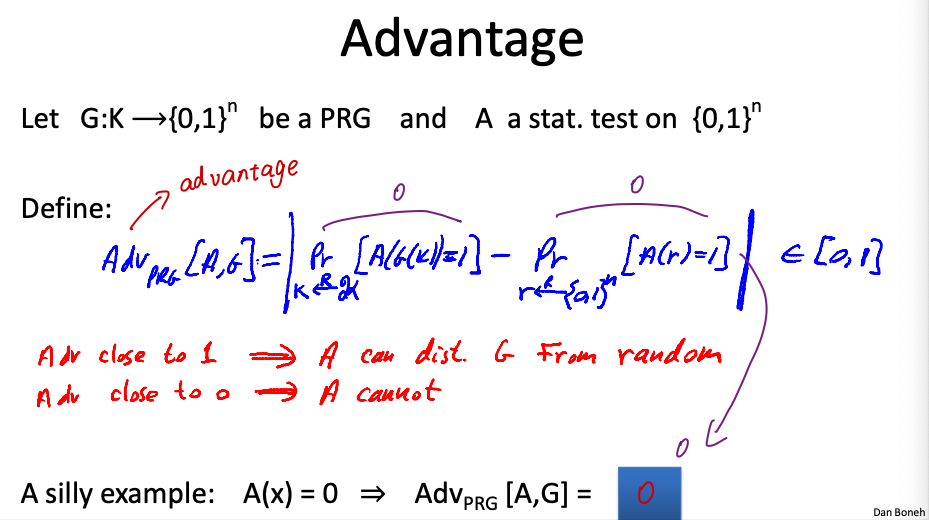 Advantage
Let G:K ⟶{0,1}ⁿ be a PRG and A a stat. test on {0,1}ⁿ
advantage
0 0
Define:
Adv_PRG [A,G] := | Pr [A(G(k))=1] - Pr [A(r)=1] | ∈ [0,1]
k ←R K r ←R {0,1}ⁿ
Adv close to 1 ⟹ A can dist. G From random
Adv close to 0 ⟹ A cannot
0
A silly example: A(x) = 0 ⇒ Adv_PRG [A,G] = 0
Dan Boneh